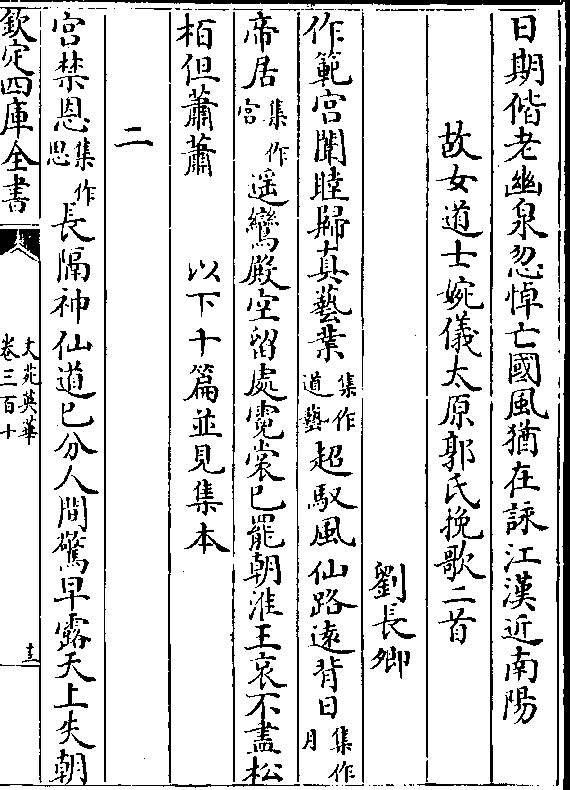 日期偕老幽泉忽悼亡國風猶在詠江漢近南陽
故女道士婉儀太原郭氏挽歌二首
劉長卿
作範宫闈睦歸真藝業集作道藝超馭風仙路遠背日集作月
帝居集作宫遥鸞殿空留處霓裳已罷朝淮王哀不盡松
栢但蕭蕭 以下十篇並見集本
二
宫禁恩集作思長隔神仙道已分人間驚早露天上失朝
欽定四庫全書
文苑英華
卷三百十